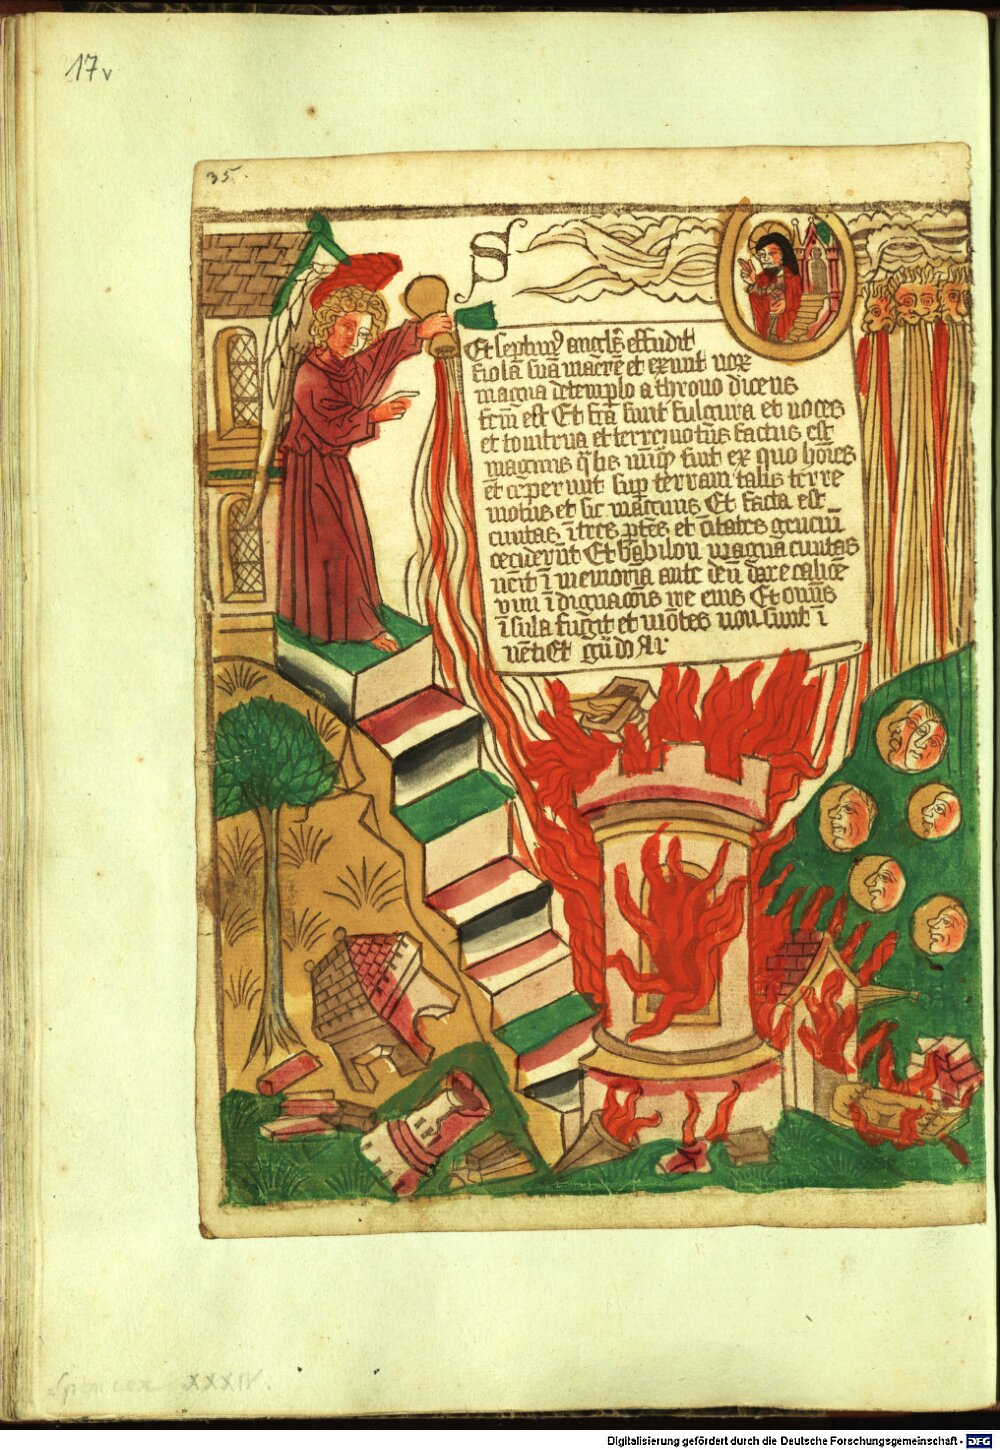 17v
35.
S
Et septimꝰ anglꝰ effudit
fiolā suā in aerē et exivit vox
magna de templo a throno dicens
fcm̄ est Et fc̄a sunt fulgura et voces
et tonitrua et terremotus factus est
magnus q̄lis nūq̄ fuit ex quo hoīes
ceperunt sup terram talis terre
motus et sic magnus Et facta est
civitas ī tres ptēs et civitates genciū
cecider̄ūt Et Babilon magna civitas
venit ī memoria ante deū dare calicē
vini īdignacōis ire eius Et omīs
īsula fugit et mōtes non sunt ī
vēti Et
Spencer XXXIV.
Digitalisierung gefördert durch die Deutsche Forschungsgemeinschaft - DFG